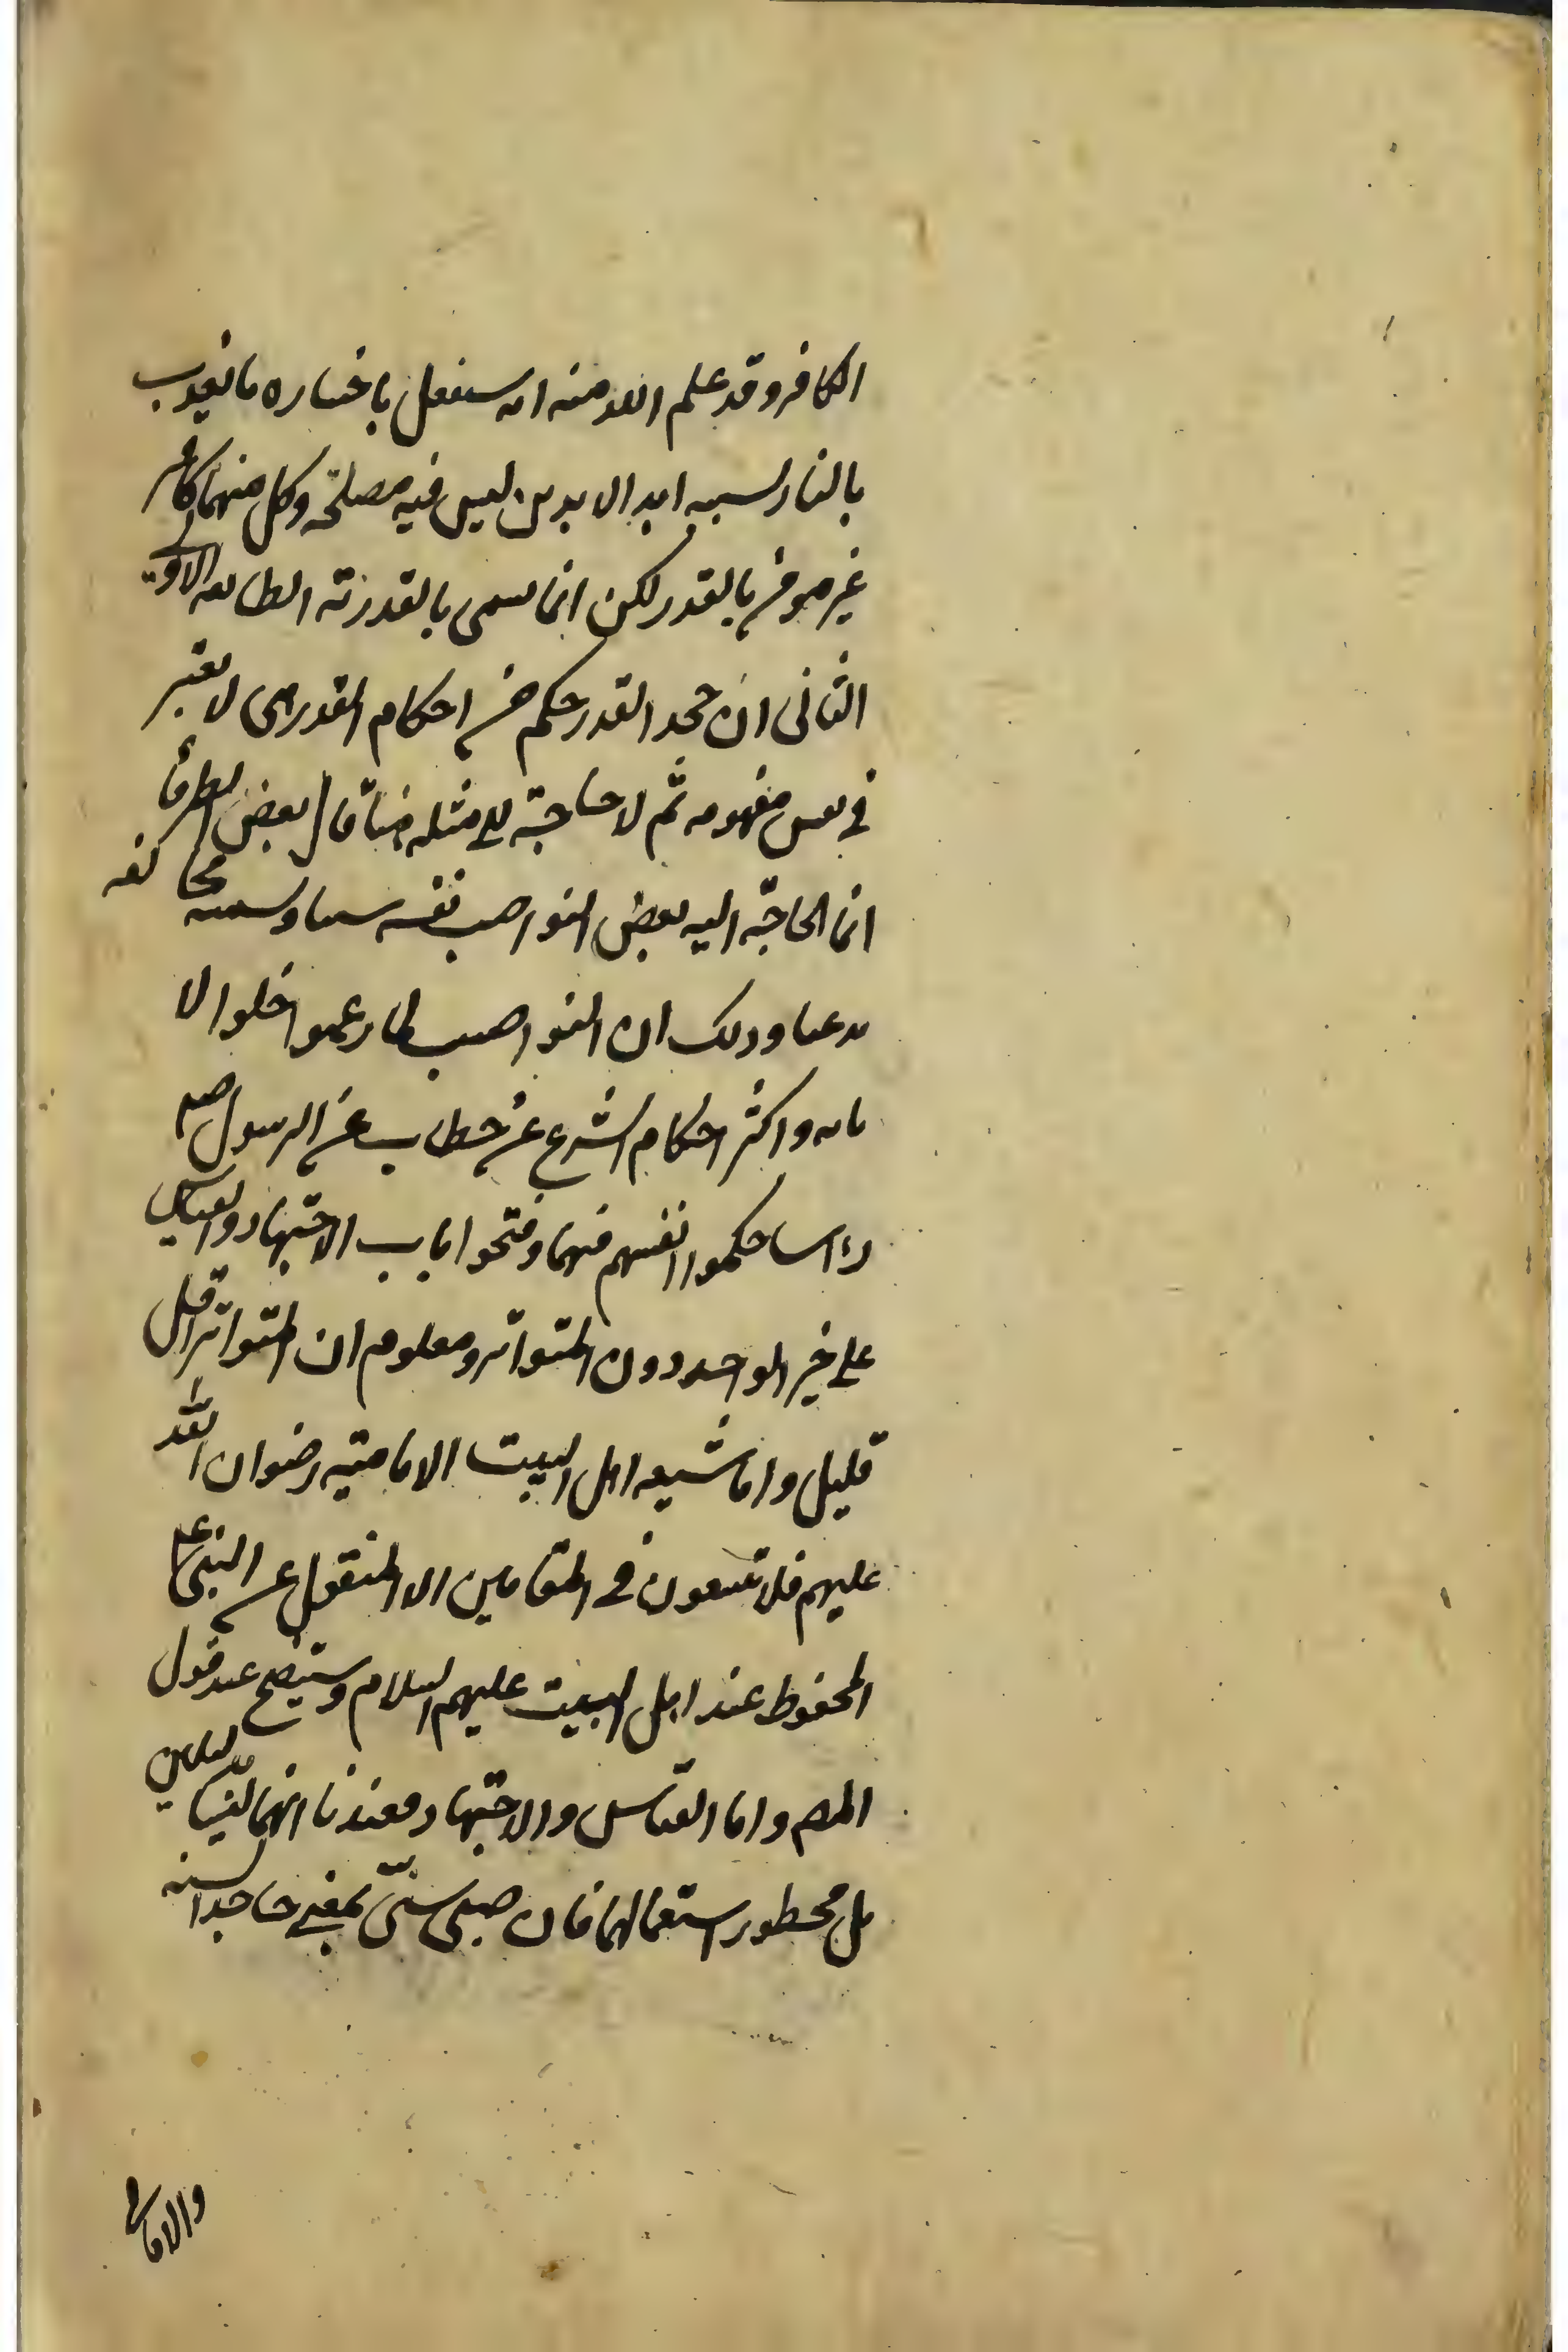 الكافر وقد علم الله منه انه سيفعل باختياره ما يعذب
بالنار لسببه ابد الابدين ليس فيه مصلحة وكل منهما كافر
غير مومن بالقدر لكن انما يسمى بالقدرية الطائفه الاولى
الثانى ان جحد القدر حكم من احكام القدرى لا يعتبر
فى مفهومه ثم لا حاجة الى مثله بعض
انما الحاجة اليه بعض النواصب نفسه سنيا وتسميته مخالفه
بدعيا وذلك ان النواصب لما زعموا خلو الا
مامه واكثر احكام الشرع عن خطاب عن الرسول صلعم
راسا حكموا انفسهم فيهما وفتحوا باب الاجتهاد والقياس
على خبر الواحد دون المتواتر ومعلوم ان المتواتر اقل
قليل واما شيعه اهل البيت الاماميه رضوان الله
عليهم فلا يتبعون فى المقامين الا المنقول عن النبى ع
المحفوظ عند اهل البيت عليهم السلام وستيضح عند قول
المص واما القياس والاجتهاد فعندنا انهما ليسا بدليلين
بل محظور استعمالهما فان سنى بمعنى جاحد السنه
والامامى